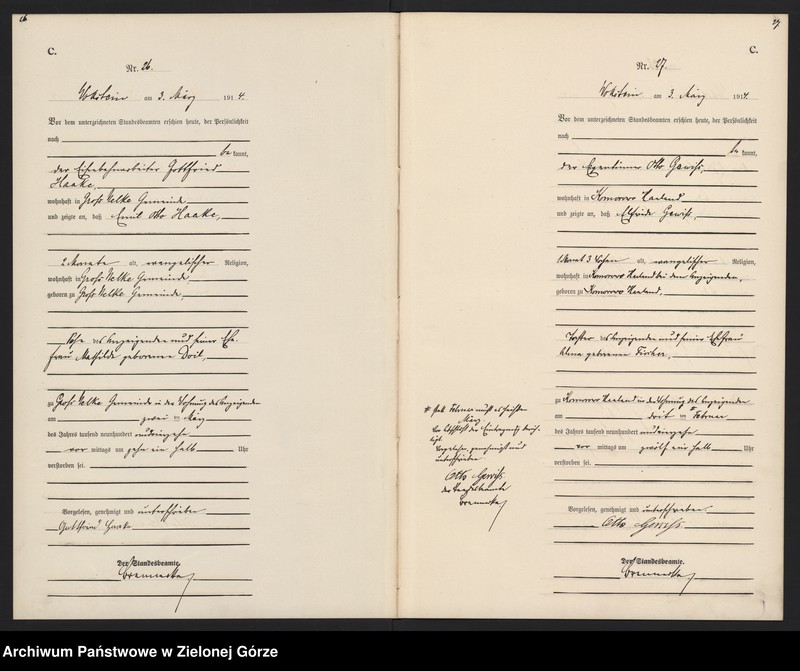 26
C.
Nr. 26.
Wollstein am 3. März 1914.
Vor dem unterzeichneten Standesbeamten erschien heute, der Persönlichkeit
nach
be kannt,
der Eisenbahnarbeiter Gottfried
Haake,
wohnhaft in Groß Nelke Gemeinde
und zeigte an, daß Emil Otto Haake,
2 Monate alt, evangelischer Religion,
wohnhaft in Groß Nelke Gemeinde,
geboren zu Groß Nelke Gemeinde,
Sohn des Anzeigenden und seiner Ehe-
frau Mathilde geborenen
zu Groß Nelke Gemeinde in der Wohnung des Anzeigenden
am zwei ten März
des Jahres tausend neunhundert vierzehn
vor mittags um zehn ein halb Uhr
verstorben sei.
Vorgelesen, genehmigt und unterschrieben
Gottfried Haake
Der Standesbeamte.
27
C.
Nr. 27.
Wollstein am 3. März 1914.
Vor dem unterzeichneten Standesbeamten erschien heute, der Persönlichkeit
nach
be kannt,
der Eigentümer Otto Gewiß,
wohnhaft in Komorowo Hauland
und zeigte an, daß Elfriede Gewiß,
1 Monat 3 Wochen alt, evangelischer Religion,
wohnhaft in Komorowo Hauland bei dem Anzeigenden,
geboren zu Komorowo Hauland,
Tochter des Anzeigenden und seiner Ehefrau
Alma geborenen Fischer,
zu Komorowo Hauland in der Wohnung des Anzeigenden
am dritten Februar
des Jahres tausend neunhundert vierzehn
vor mittags um zwölf ein halb Uhr
verstorben sei.
Vorgelesen, genehmigt und unterschrieben
Otto Gewiss
Der Standesbeamte.
* statt Februar muß es heißen
März
Vorgelesen genehmigt und
unterschrieben
Otto Gewiss
der Standesbeamte
Archiwum Państwowe w Zielonej Górze